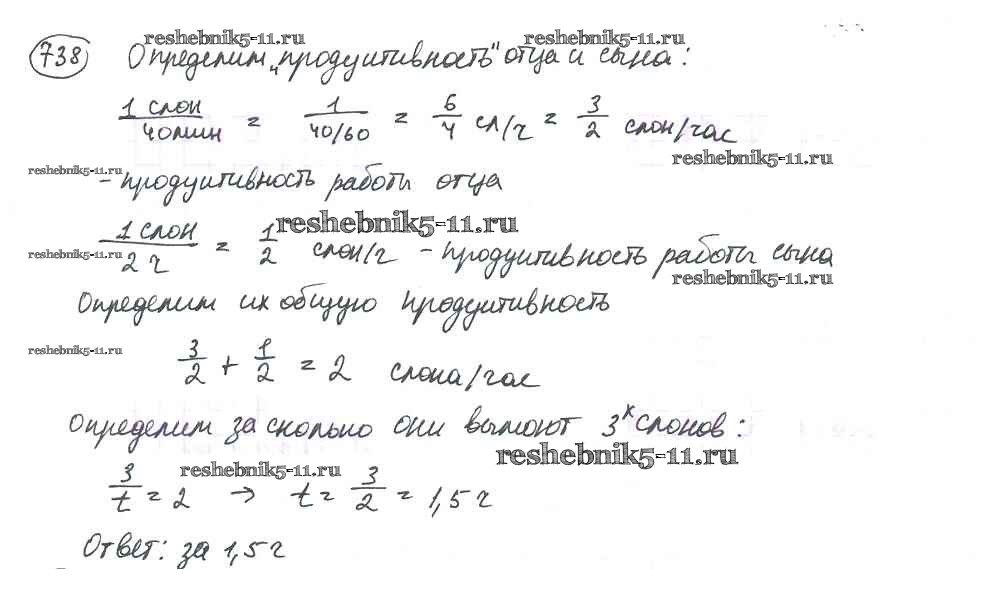 reshebnik5-11.ru reshebnik5-11.ru
738 Определим "продуитивность" отца и сына:
1 слон / 40мин = 1 / 40/60 = 6/4 сл/ч = 3/2 слон/час
reshebnik5-11.ru
reshebnik5-11.ru
- продуитивность работы отца
reshebnik5-11.ru
1 слон / 2 ч = 1/2 слон/ч - продуитивность работы сына
reshebnik5-11.ru
reshebnik5-11.ru
Определим их общую продуитивность
reshebnik5-11.ru
3/2 + 1/2 = 2 слона/час
Определим за сколько они вымоют 3х слонов:
reshebnik5-11.ru
reshebnik5-11.ru
3/t = 2 → t = 3/2 = 1,5 ч
Ответ: за 1,5 ч